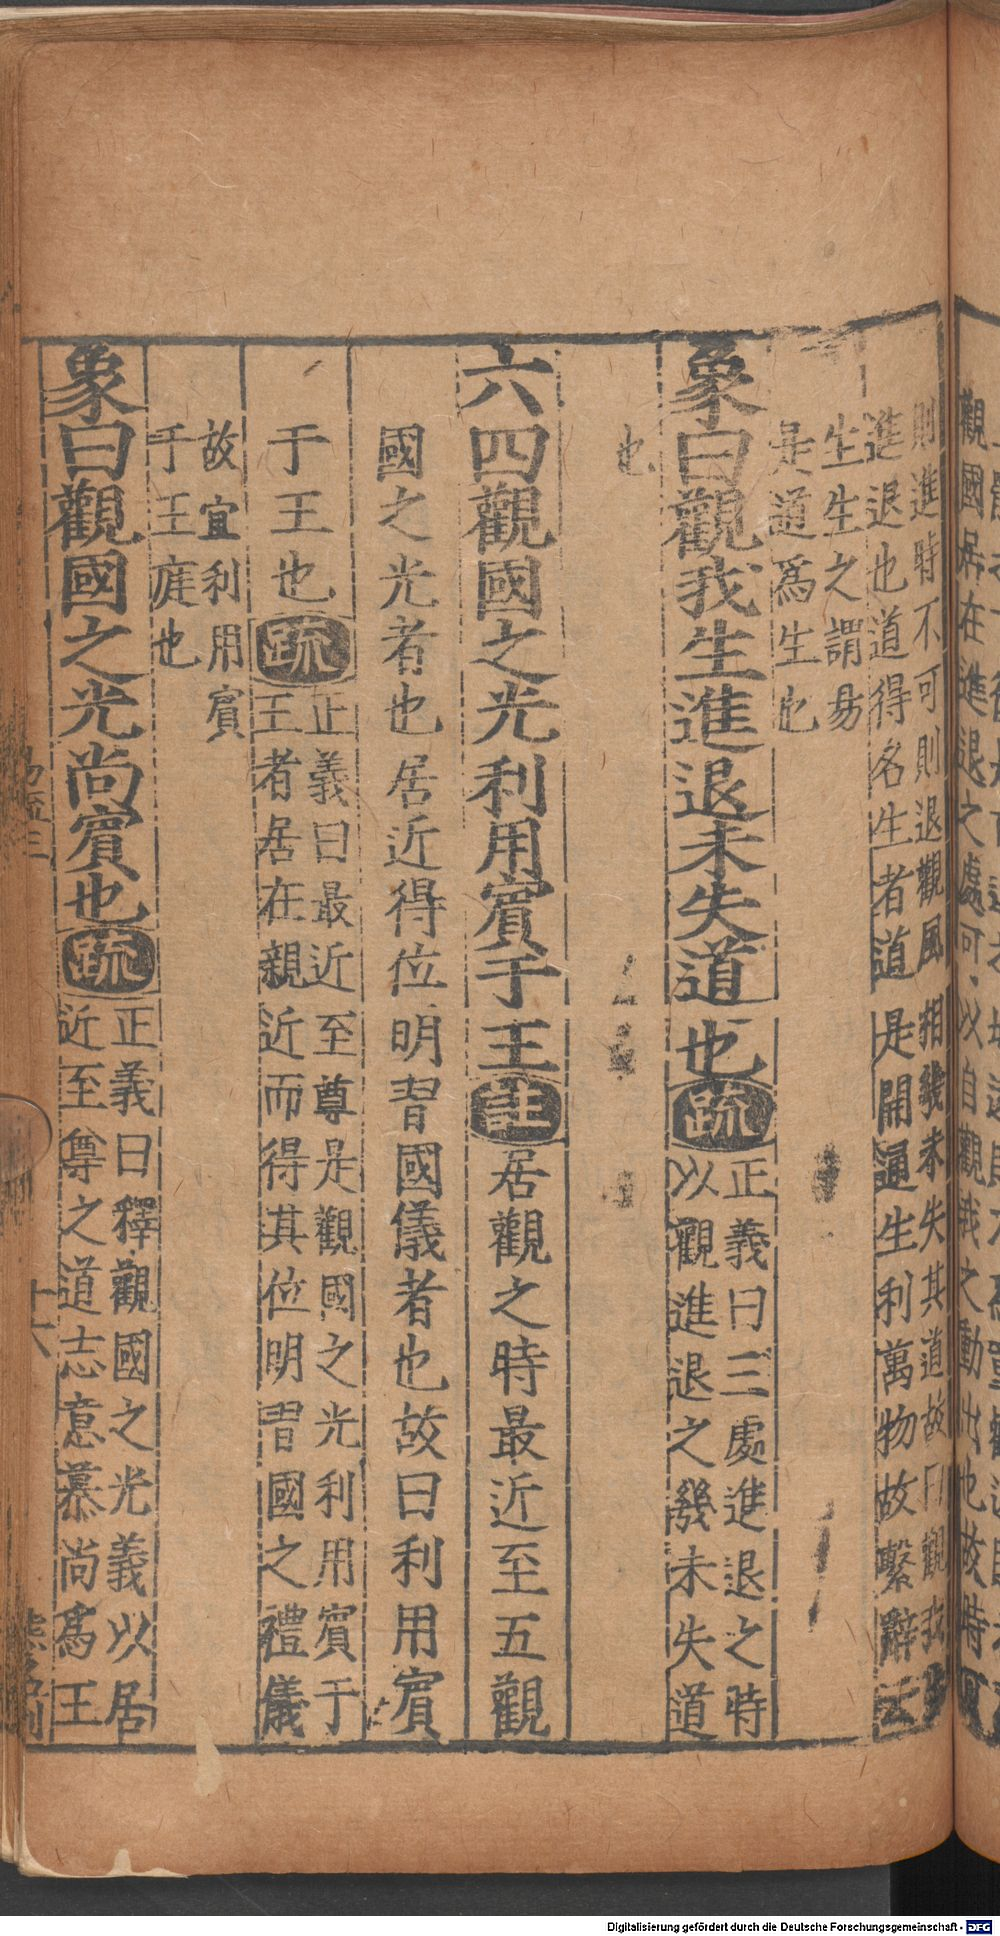 則進時不可則退觀風相幾未失其道故曰觀我生
進退也道得名生者道是開通生利萬物故繫辭云
生生之謂易
是道爲生也
象曰觀我生進退未失道也疏
正義曰三處進退之時
以觀進退之幾未失道
也
六四觀國之光利用賓于王註居觀之時最近至五觀
國之光者也居近得位明習國儀者也故曰利用賓
于王也疏
正義曰最近至尊是觀國之光利用賓于
王者居在親近而得其位明習國之禮儀
故宜利用賓
于王庭也
象曰觀國之光尚賓也疏
正義曰釋觀國之光義以居
近至尊之道志意慕尚爲王
十六
Digitalisierung gefördert durch die Deutsche Forschungsgemeinschaft - DFG